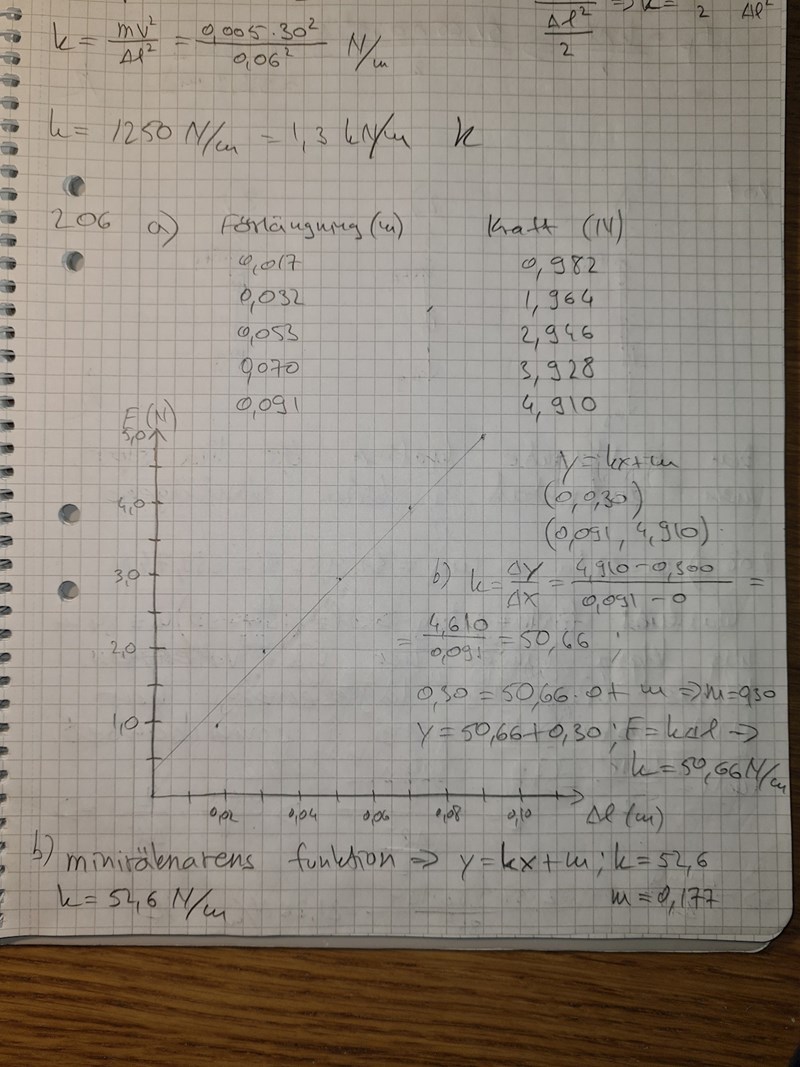 k = mv²/Δl² = 0,005·30²/0,06² N/m
Δl²/2 ⇒ k = 2 Δl²
k = 1250 N/m = 1,3 kN/m k
206 a) Förlängning (m) Kraft (N)
0,017 0,982
0,032 1,964
0,053 2,946
0,070 3,928
0,091 4,910
F (N)
5,0
4,0
3,0
2,0
1,0
0,02 0,04 0,06 0,08 0,10 Δl (m)
y = kx+m
(0,0,30)
(0,091, 4,910)
b) k = ΔY/ΔX = 4,910-0,300/0,091-0 =
= 4,610/0,091 = 50,66 ;
0,30 = 50,66·0+ m ⇒ m=0,30
Y = 50,66+0,30 ; F = kΔl →
k = 50,66 N/m
b) miniräknarens funktion ⇒ y = kx+m ; k = 52,6
k = 52,6 N/m m = 0,177